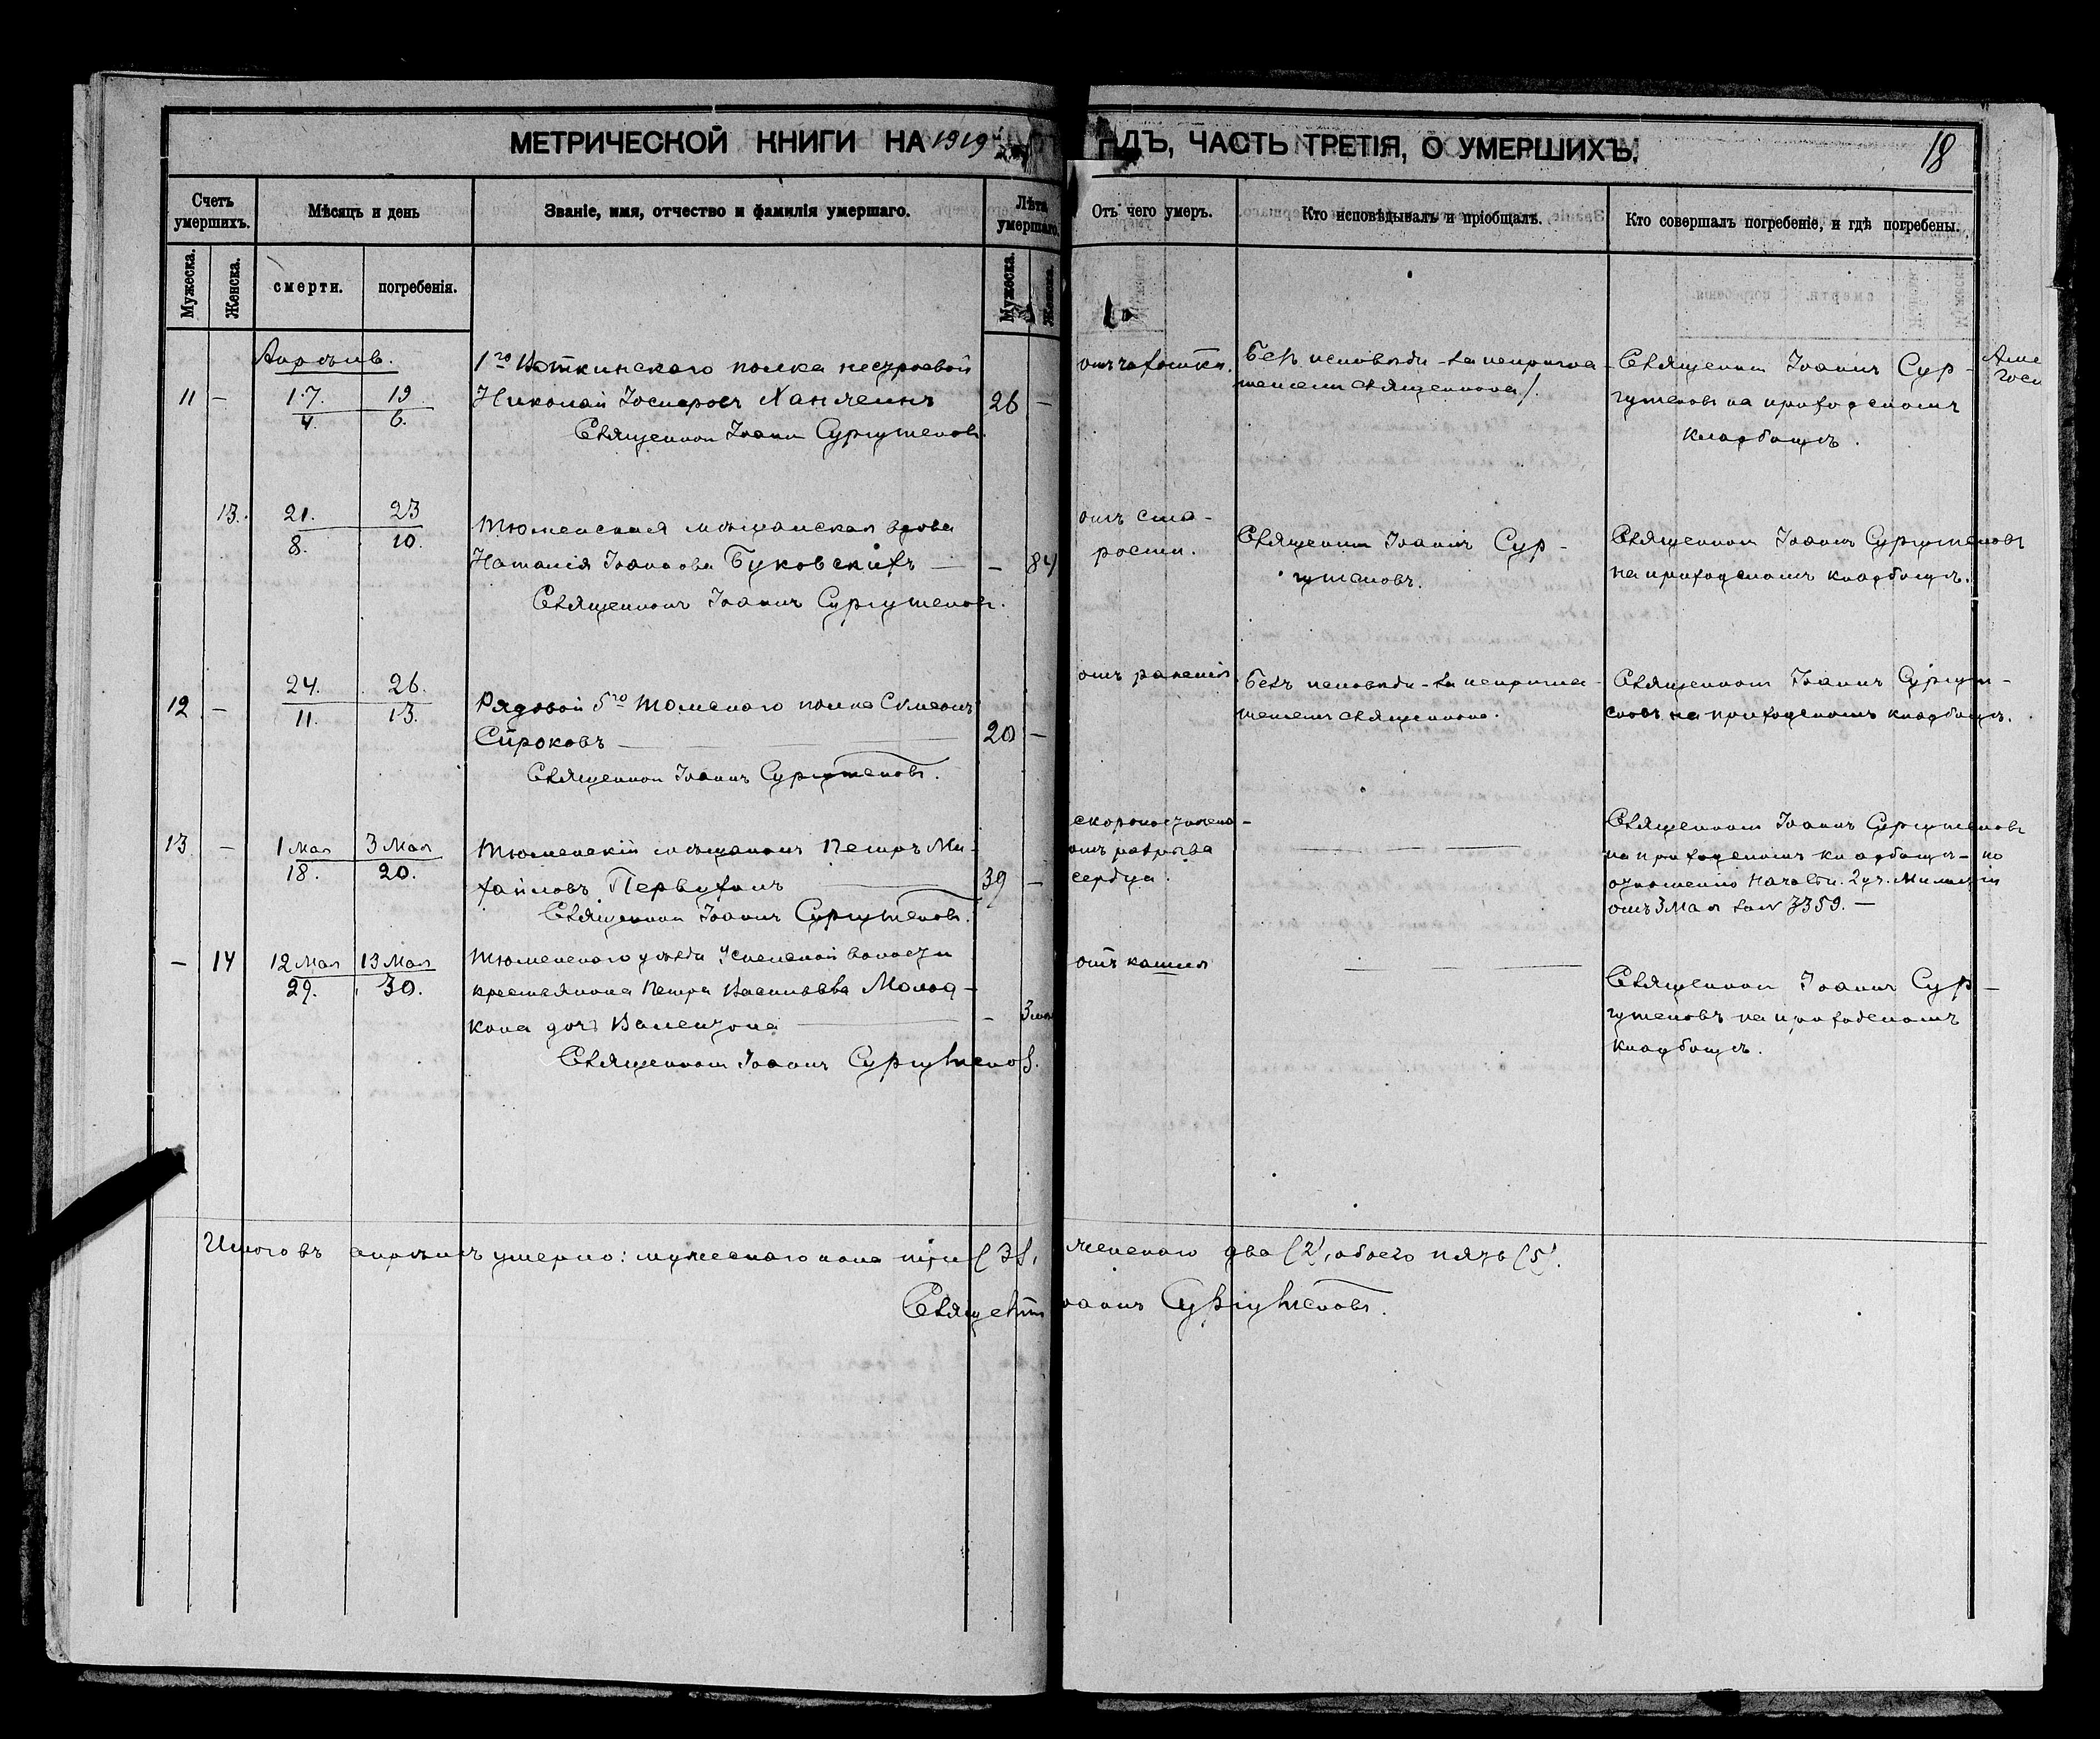 МЕТРИЧЕСКОЙ КНИГИ НА 1919й
ДЪ, ЧАСТЬ ТРЕТІЯ, О УМЕРШИХЪ.
18
Счетъ умершихъ.
Мѣсяцъ и день
Званіе, имя, отчество и фамилія умершаго.
Лѣта умершаго.
Отъ чего умеръ.
Кто исповѣдывалъ и пріобщалъ.
Кто совершалъ погребеніе, и гдѣ погребены.
Мужеска.
Женска.
смерти.
погребенія.
Мужеска.
Женска.
Апрѣль.
11 – 17 19
4. 6.
1го Воткинскаго полка нестроевой
Николай
Священникъ Іоаннъ Сургутсковъ.
26 –
Безъ исповѣди – за непригла-
шенем священника
Священник Іоаннъ Сур-
гутсковъ на приходскомъ
кладбищѣ.
13. 21. 23
8. 10.
Тюменская мѣщанская вдова
Наталія Іоаннова Буковскихъ
Священникъ Іоаннъ Сургутсковъ.
– 84
отъ ста-
рости.
Священник Іоаннъ Сур-
гутсковъ.
Священник Іоаннъ Сургутсковъ
на приходскомъ кладбищѣ.
12 – 24. 26.
11. 13.
Рядовой 5го Томскаго полка Симеонъ
Сѝроковъ
Священник Іоаннъ Сургутсковъ.
20 –
отъ раненія
Безъ исповѣди – за непригла-
шенем священника.
Священник Іоаннъ Сургут-
сковъ на приходскомъ кладбищѣ.
13 – 1 Мая 3 Мая
18. 20.
Тюменскій мѣщанинъ Петръ Ми-
хайловъ Первухинъ
Священник Іоаннъ Сургутсковъ.
39 –
скоропостижно
отъ разрыва
сердца.
Священник Іоаннъ Сургутсковъ
на приходскомъ кладбищѣ – по
отношенію Начальн. 2 уч. Милиціи
отъ 3 Мая за № 7359. –
– 14 12 Мая 13 Мая
29. 30.
Тюменскаго уѣзда Успенской волости
крестьянина Петра Васильева Молод-
кова дочь Валентина
Священник Іоаннъ Сургутсковъ.
– 3 мѣс
отъ кашля
Священник Іоаннъ Сур-
гутсковъ на приходскомъ
кладбищѣ.
Итого въ апрѣлѣ умерло: мужескаго пола три (3), женскаго два (2), обоего пять (5).
Священникъ Іоаннъ Сургутсковъ.